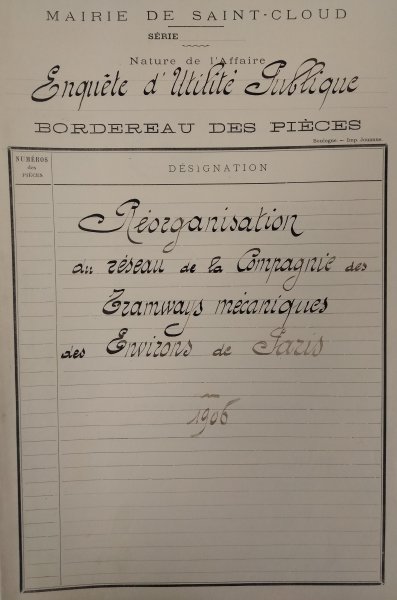 MAIRIE DE SAINT-CLOUD
SÉRIE
Nature de l'Affaire
Enquête d'Utilité Publique
BORDEREAU DES PIÈCES
Boulogne. — Imp. Jouanne.
NUMÉROS
des
PIÈCES
DÉSIGNATION
Réorganisation
du réseau de la Compagnie des
Tramways mécaniques
des Environs de Paris
1906